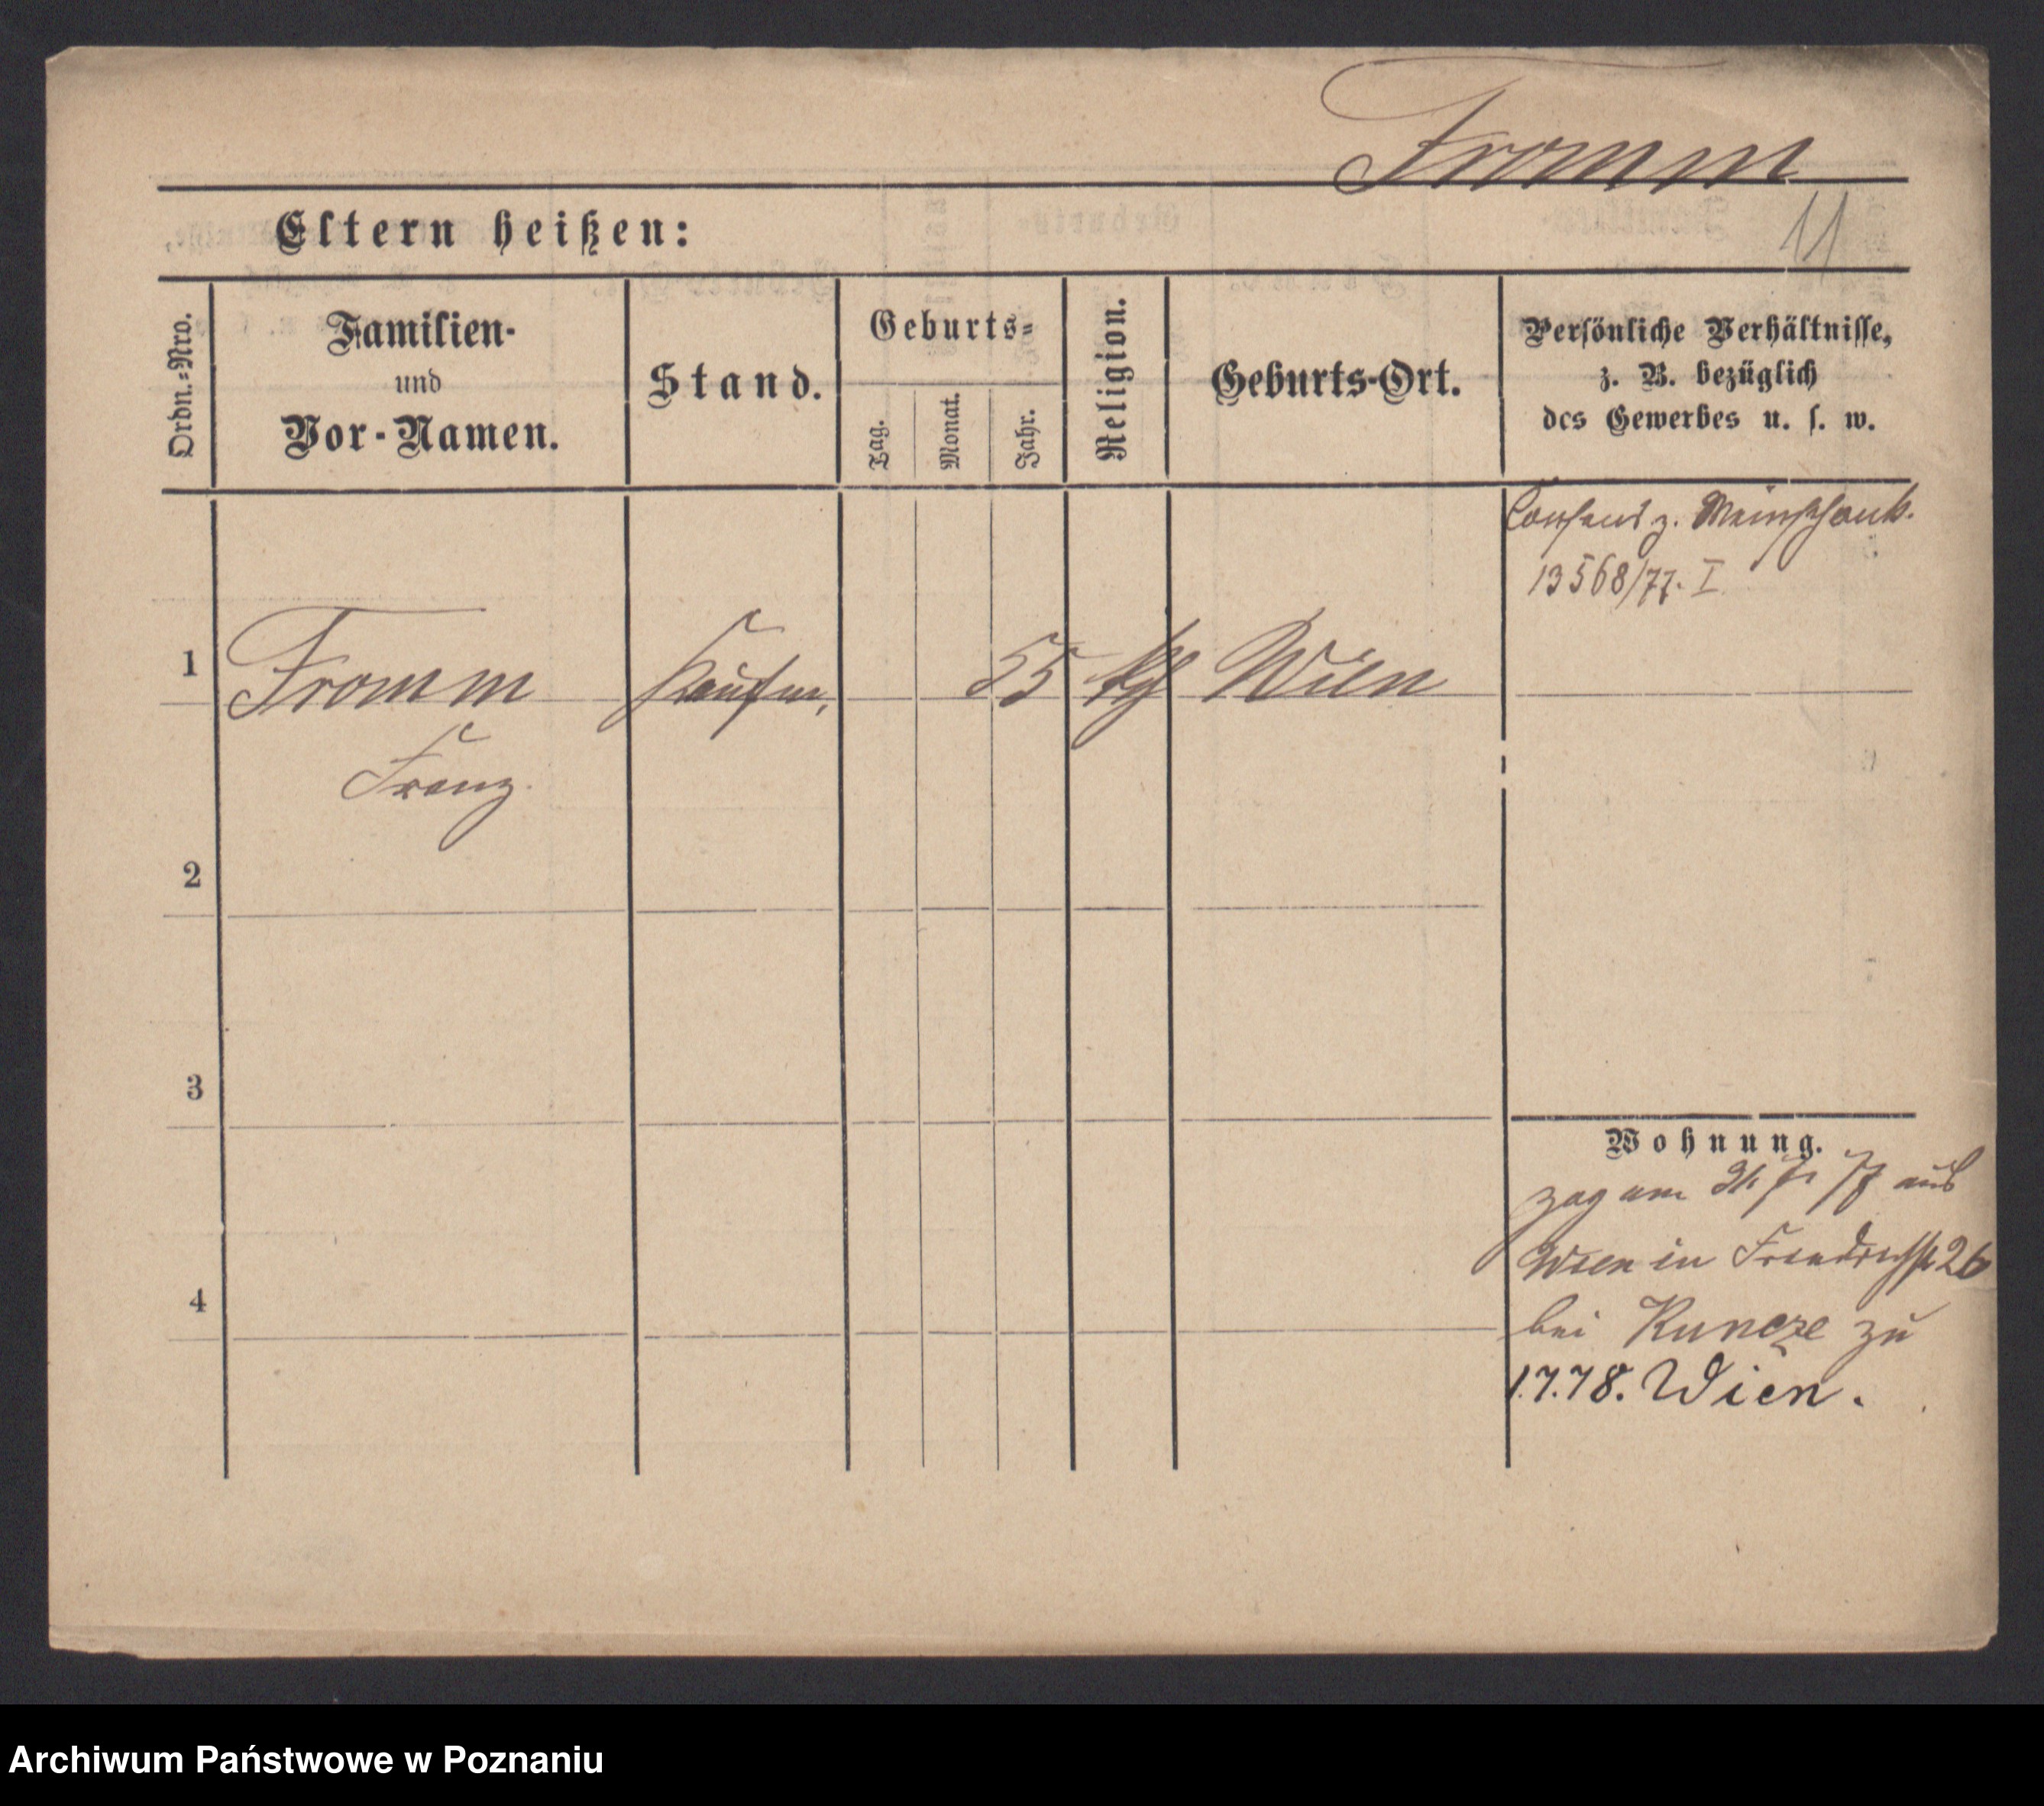 Fromm
11
Eltern heißen:
Ordn.=Nro.
Familien-
und
Vor-Namen.
Stand.
Geburts=
Tag.
Monat.
Jahr.
Religion.
Geburts-Ort.
Persönliche Verhältnisse,
z. B. bezüglich
des Gewerbes u. s. w.
Consens z. Weinschank.
13568/77. I
1
Fromm
Kaufm,
55
Wien
Franz.
2
3
4
Wohnung.
zog am 7 77 aus
Wien in 26
bei Kuncze zu
1.7.78. Wien.
Archiwum Państwowe w Poznaniu